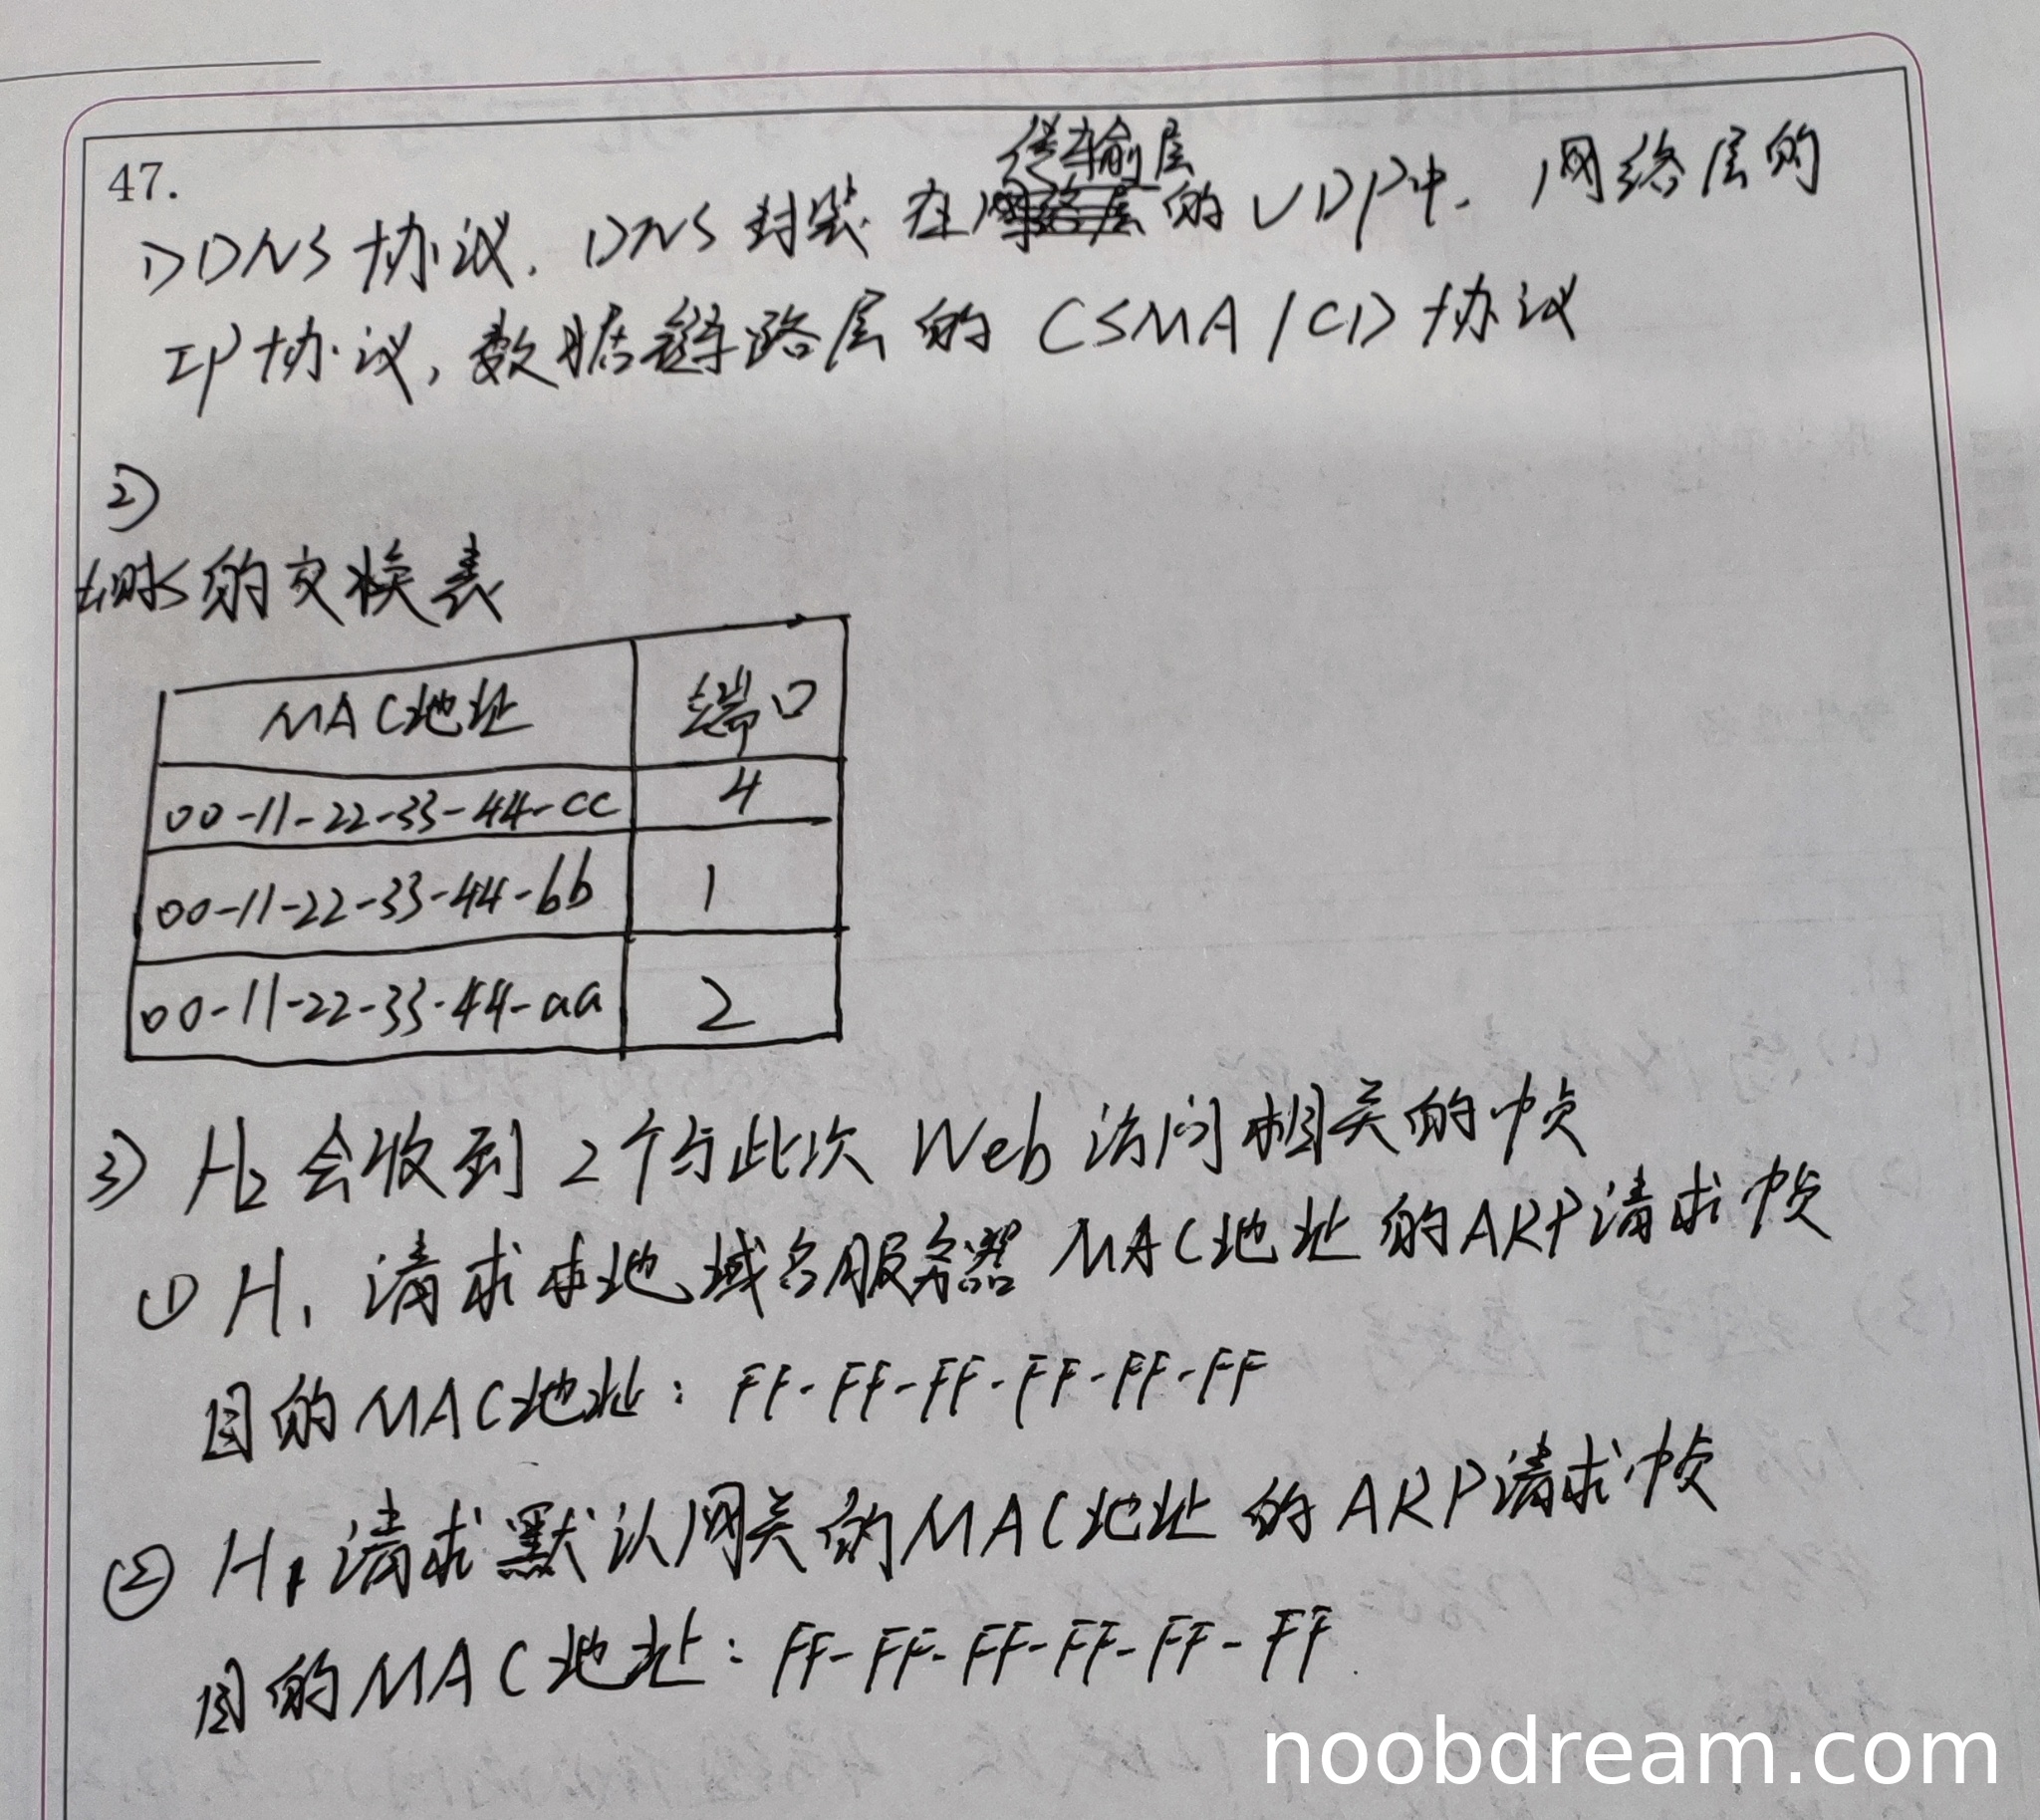 47.
传输层
1) DNS协议. DNS封装在的UDP中. 网络层的
IP协议, 数据链路层的 CSMA/CD协议
2)
的交换表
MAC地址 端口
00-11-22-33-44-cc 4
00-11-22-33-44-bb 1
00-11-22-33-44-aa 2
3) H2会收到2个与此次Web访问相关的帧
① H1请求本地域名服务器MAC地址的ARP请求帧
目的MAC地址: FF-FF-FF-FF-FF-FF
② H1请求默认网关的MAC地址的ARP请求帧
目的MAC地址: FF-FF-FF-FF-FF-FF.
noobdream.com